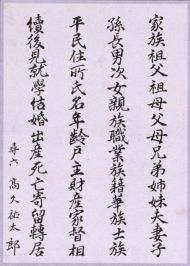 家族祖父祖母父母兄弟姉妹夫妻子
孫長男次女親族職業族籍華族士族
平民住所氏名年齢戸主財産家督相
續後見就學結婚出産死亡寄留轉居
尋六 高久祐太郎